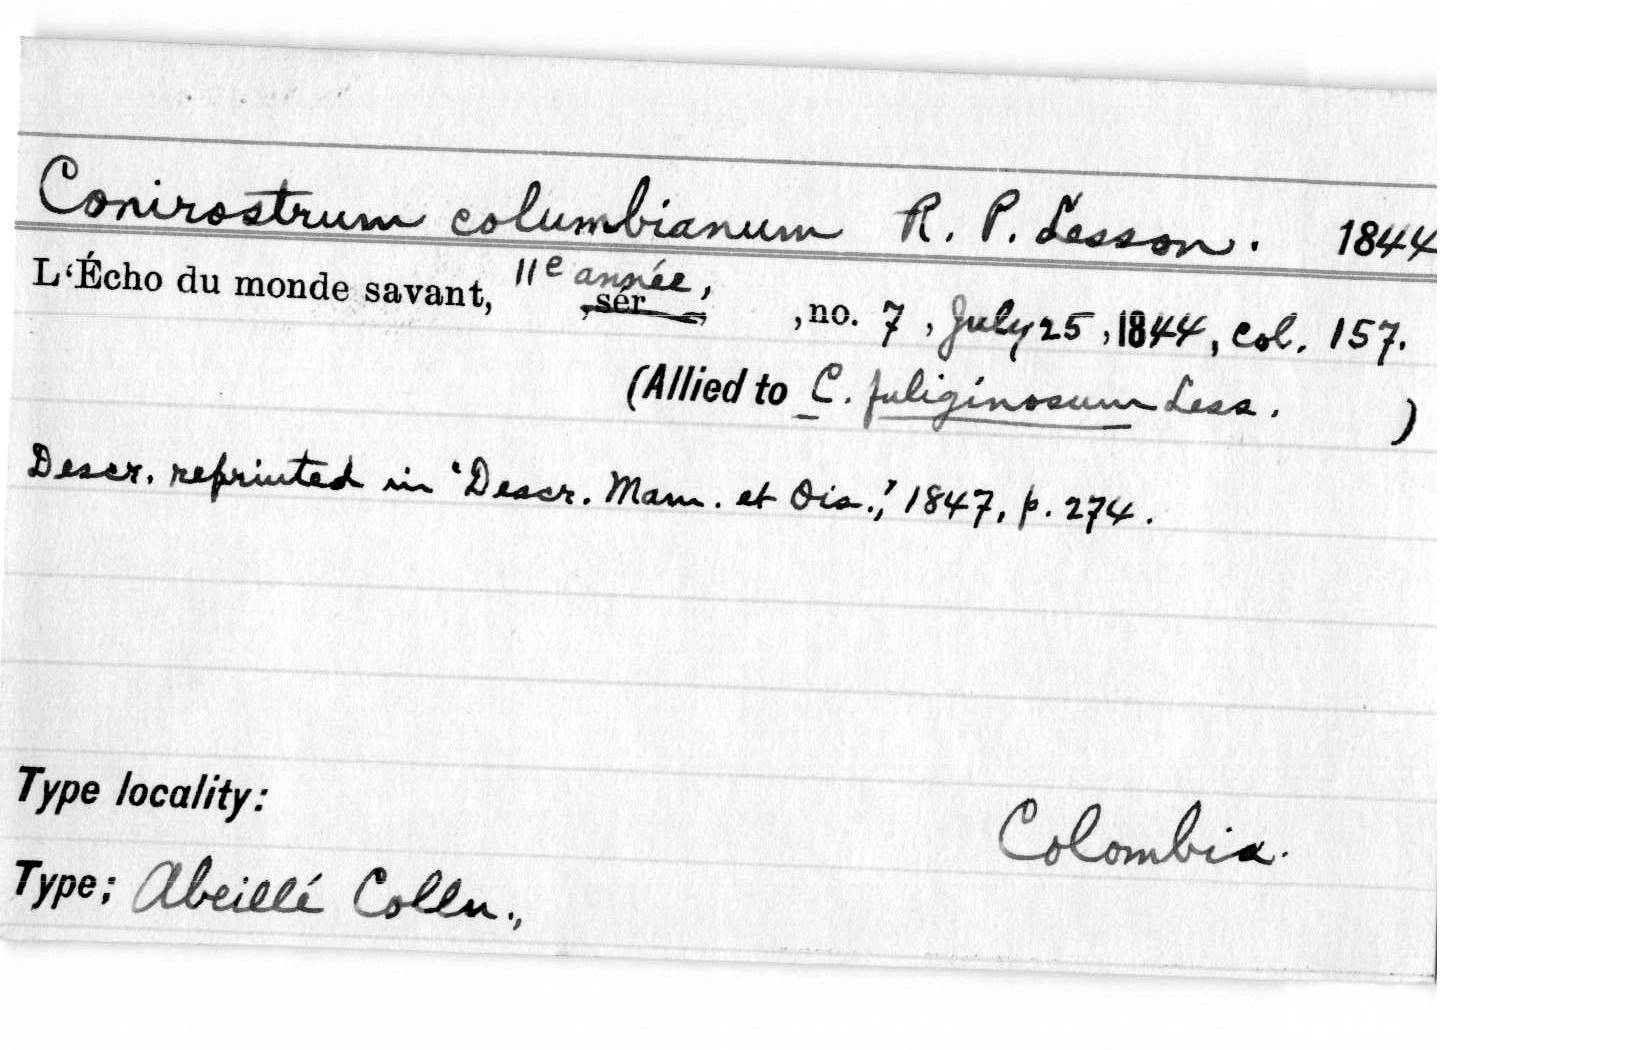 Conirostrum columbianum R. P. Lesson. 1844
L‘Écho du monde savant, 11e année, ,sér , ,no. 7, July 25, 1844, col. 157.
(Allied to C. fuliginosum Less. )
Descr. reprinted in ‘Descr. Mam. et Ois.,’ 1847, p. 274.
Type locality:
Colombia.
Type; Abeillé Colln.,